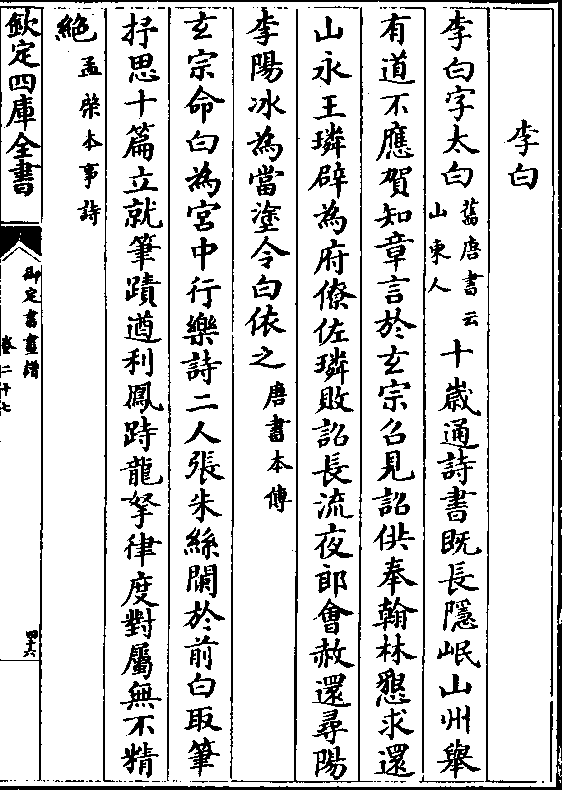 李白
李白字太白舊唐書云山東人十嵗通詩書既長隱岷山州舉
有道不應賀知章言於玄宗召見詔供奉翰林懇求還
山永王璘辟為府僚佐璘敗詔長流夜郎會赦還尋陽
李陽冰為當塗令白依之唐書本傳
玄宗命白為宮中行樂詩二人張朱絲闌於前白取筆
抒思十篇立就筆蹟遒利鳳跱龍拏律度對屬無不精
絶孟棨本事詩
欽定四庫全書
御定書畫譜
卷二十七
四十六